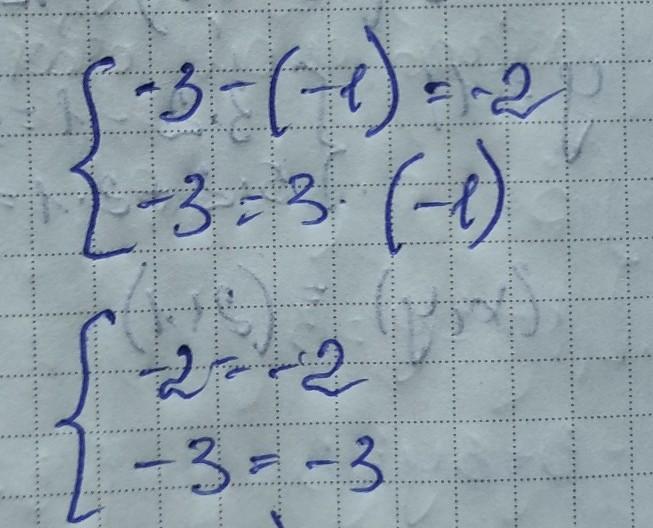 -3-(-1)=-2
-3=3·(-1)
-2=-2
-3=-3